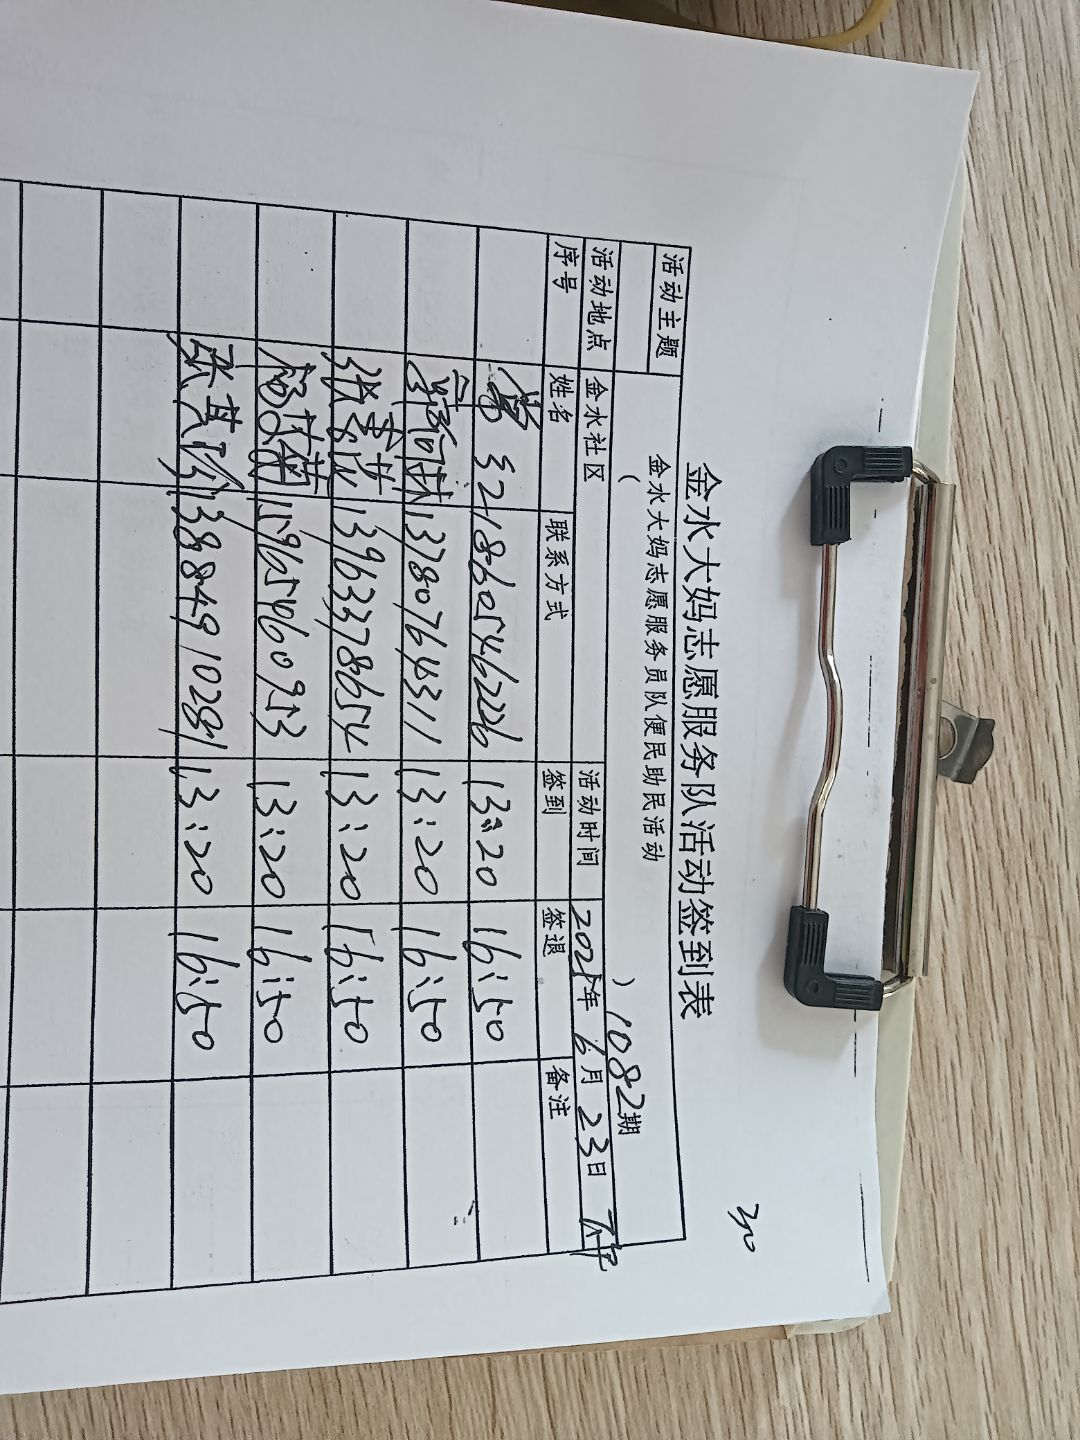 3o
金水大妈志愿服务队活动签到表
活动主题 金水大妈志愿服务员队便民助民活动
( ) 1082期
活动地点 金水社区 活动时间 2025年 6月 23日 下午
序号 姓名 联系方式 签到 签退 备注
18605462226 13:20 16:50
13780764311 13:20 16:50
13963378654 13:20 16:50
15965460953 13:20 16:50
13884910281 13:20 16:50